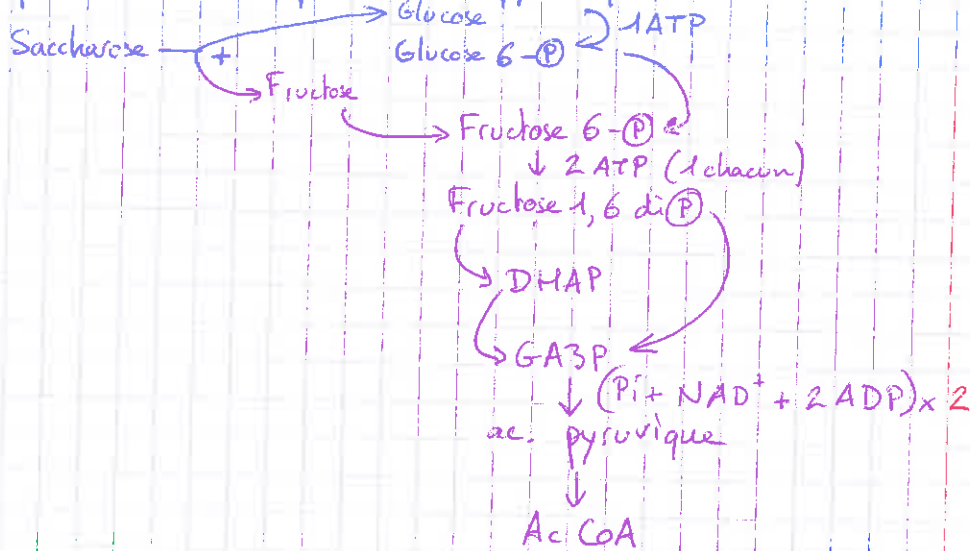 Glucose
1ATP
Saccharose
+
Glucose 6-P
Fructose
Fructose 6-P
2 ATP (1 chacun)
Fructose 1,6 di P
DHAP
GA3P
(Pi + NAD+ + 2 ADP) x 2
ac. pyruvique
Ac CoA